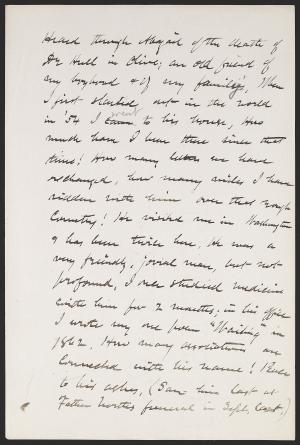 Heard through Abigail of the death of
Dr Hull in Olive; an old friend of
my boyhood & of my family's. When
I first started out in the world
in 54 I went to his house, How
much have I been there since that
time! How many letters we have
exchanged, how many miles I have
ridden with him over that rough
Country! He visited me in Washington
& has been twice here. He was a
very friendly, jovial man, but not
profound, I once studied medicine
with him for 2 months; in his office
I wrote my one poem "Waiting" in
1862. How many associations are
Connected with his name! Peace
to his ashes, (Saw him last at
Father North's funeral in Sept. last.)